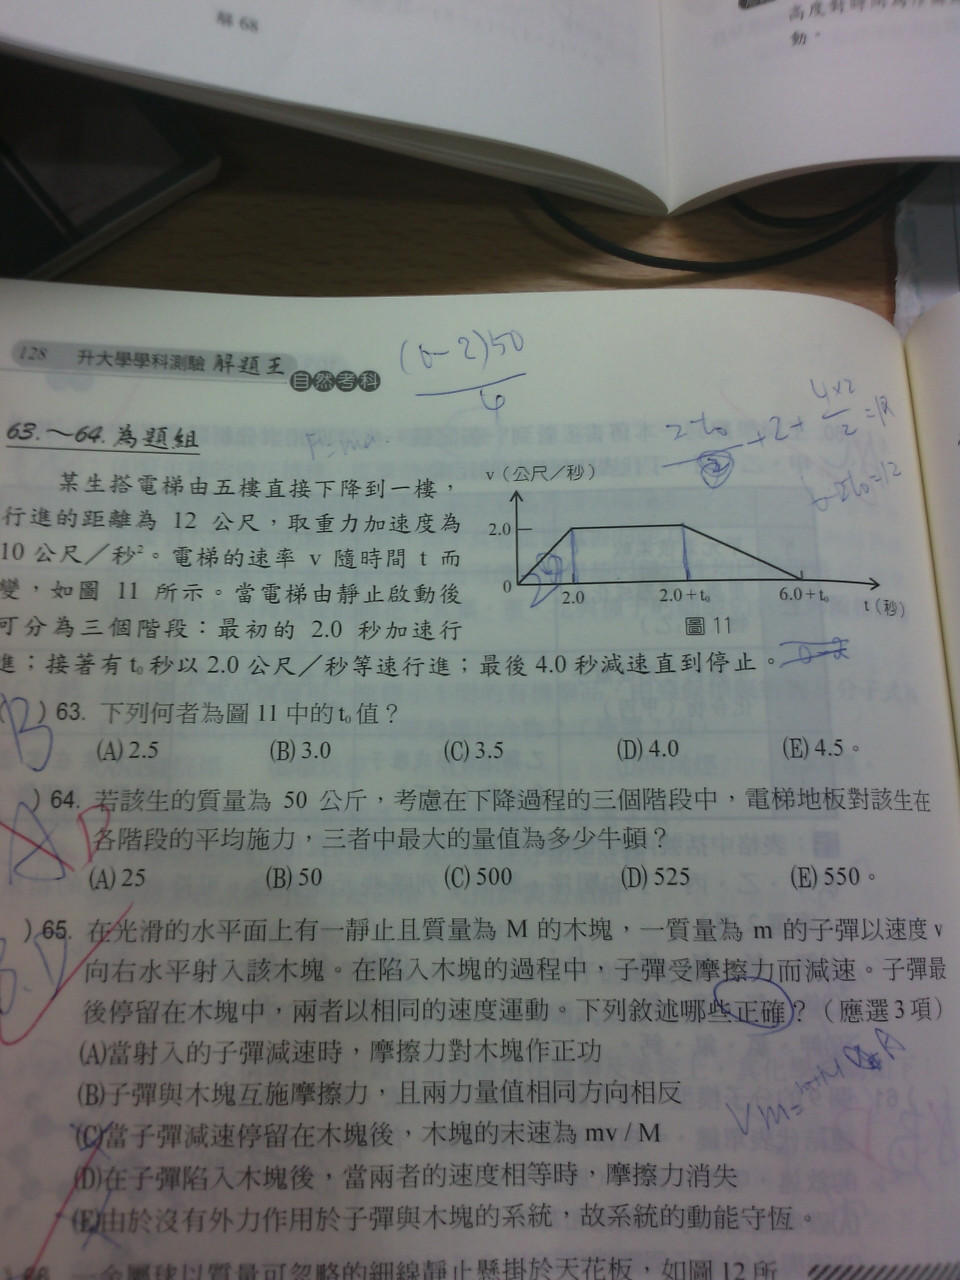 解 68
動。
128 升大學學科測驗 解題王 自然考科
(0-2)50
63.～64.為題組
F=ma
某生搭電梯由五樓直接下降到一樓，
行進的距離為 12 公尺，取重力加速度為
10 公尺／秒²。電梯的速率 v 隨時間 t 而
變，如圖 11 所示。當電梯由靜止啟動後
可分為三個階段：最初的 2.0 秒加速行
進；接著有 t₀ 秒以 2.0 公尺／秒等速行進；最後 4.0 秒減速直到停止。
v（公尺／秒）
2.0
0
2.0
2.0+t₀
6.0+t₀
t（秒）
圖 11
B
)63. 下列何者為圖 11 中的 t₀ 值？
(A) 2.5 (B) 3.0 (C) 3.5 (D) 4.0 (E) 4.5。
A D
)64. 若該生的質量為 50 公斤，考慮在下降過程的三個階段中，電梯地板對該生在
各階段的平均施力，三者中最大的量值為多少牛頓？
(A) 25 (B) 50 (C) 500 (D) 525 (E) 550。
)65. 在光滑的水平面上有一靜止且質量為 M 的木塊，一質量為 m 的子彈以速度 v
向右水平射入該木塊。在陷入木塊的過程中，子彈受摩擦力而減速。子彈最
後停留在木塊中，兩者以相同的速度運動。下列敘述哪些正確？（應選 3 項）
(A)當射入的子彈減速時，摩擦力對木塊作正功
(B)子彈與木塊互施摩擦力，且兩力量值相同方向相反
(C)當子彈減速停留在木塊後，木塊的末速為 mv / M
(D)在子彈陷入木塊後，當兩者的速度相等時，摩擦力消失
(E)由於沒有外力作用於子彈與木塊的系統，故系統的動能守恆。
一金屬球以質量可忽略的細線靜止懸掛於天花板，如圖 12 所